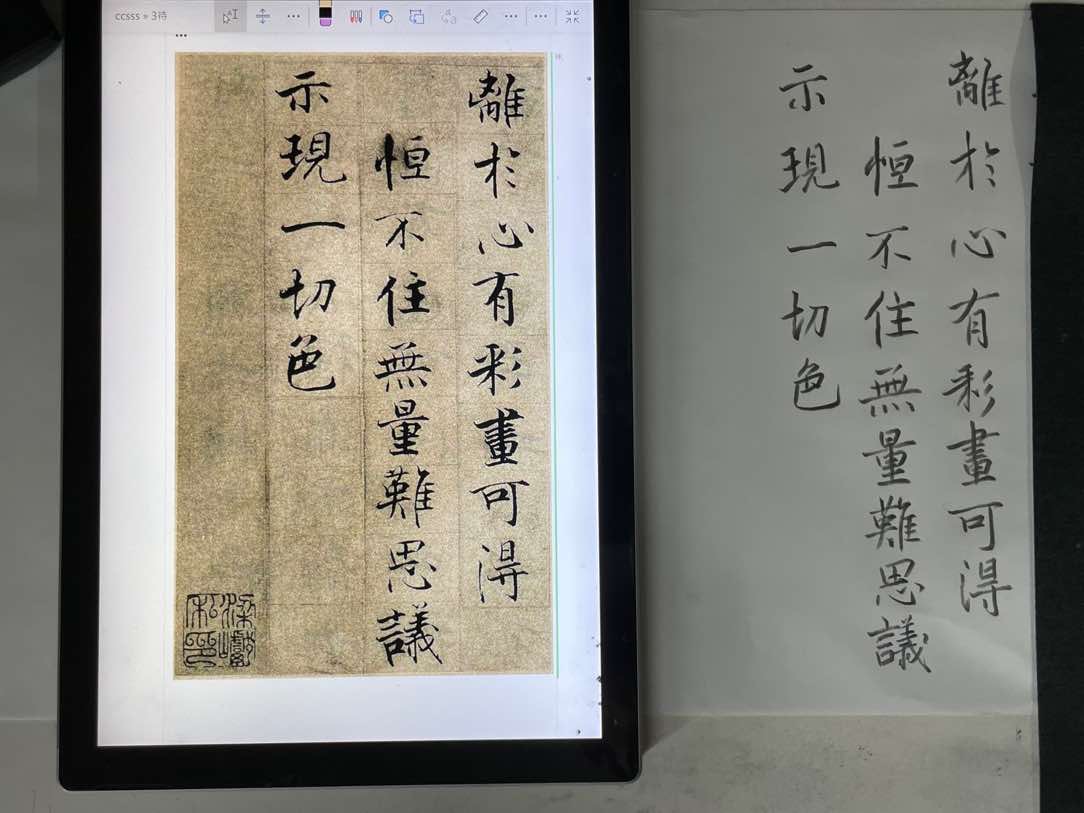 ccsss » 3待
離於心有彩畫可得
恒不住無量難思議
示現一切色
梁巘私印
離於心有彩畫可得
恒不住無量難思議
示現一切色